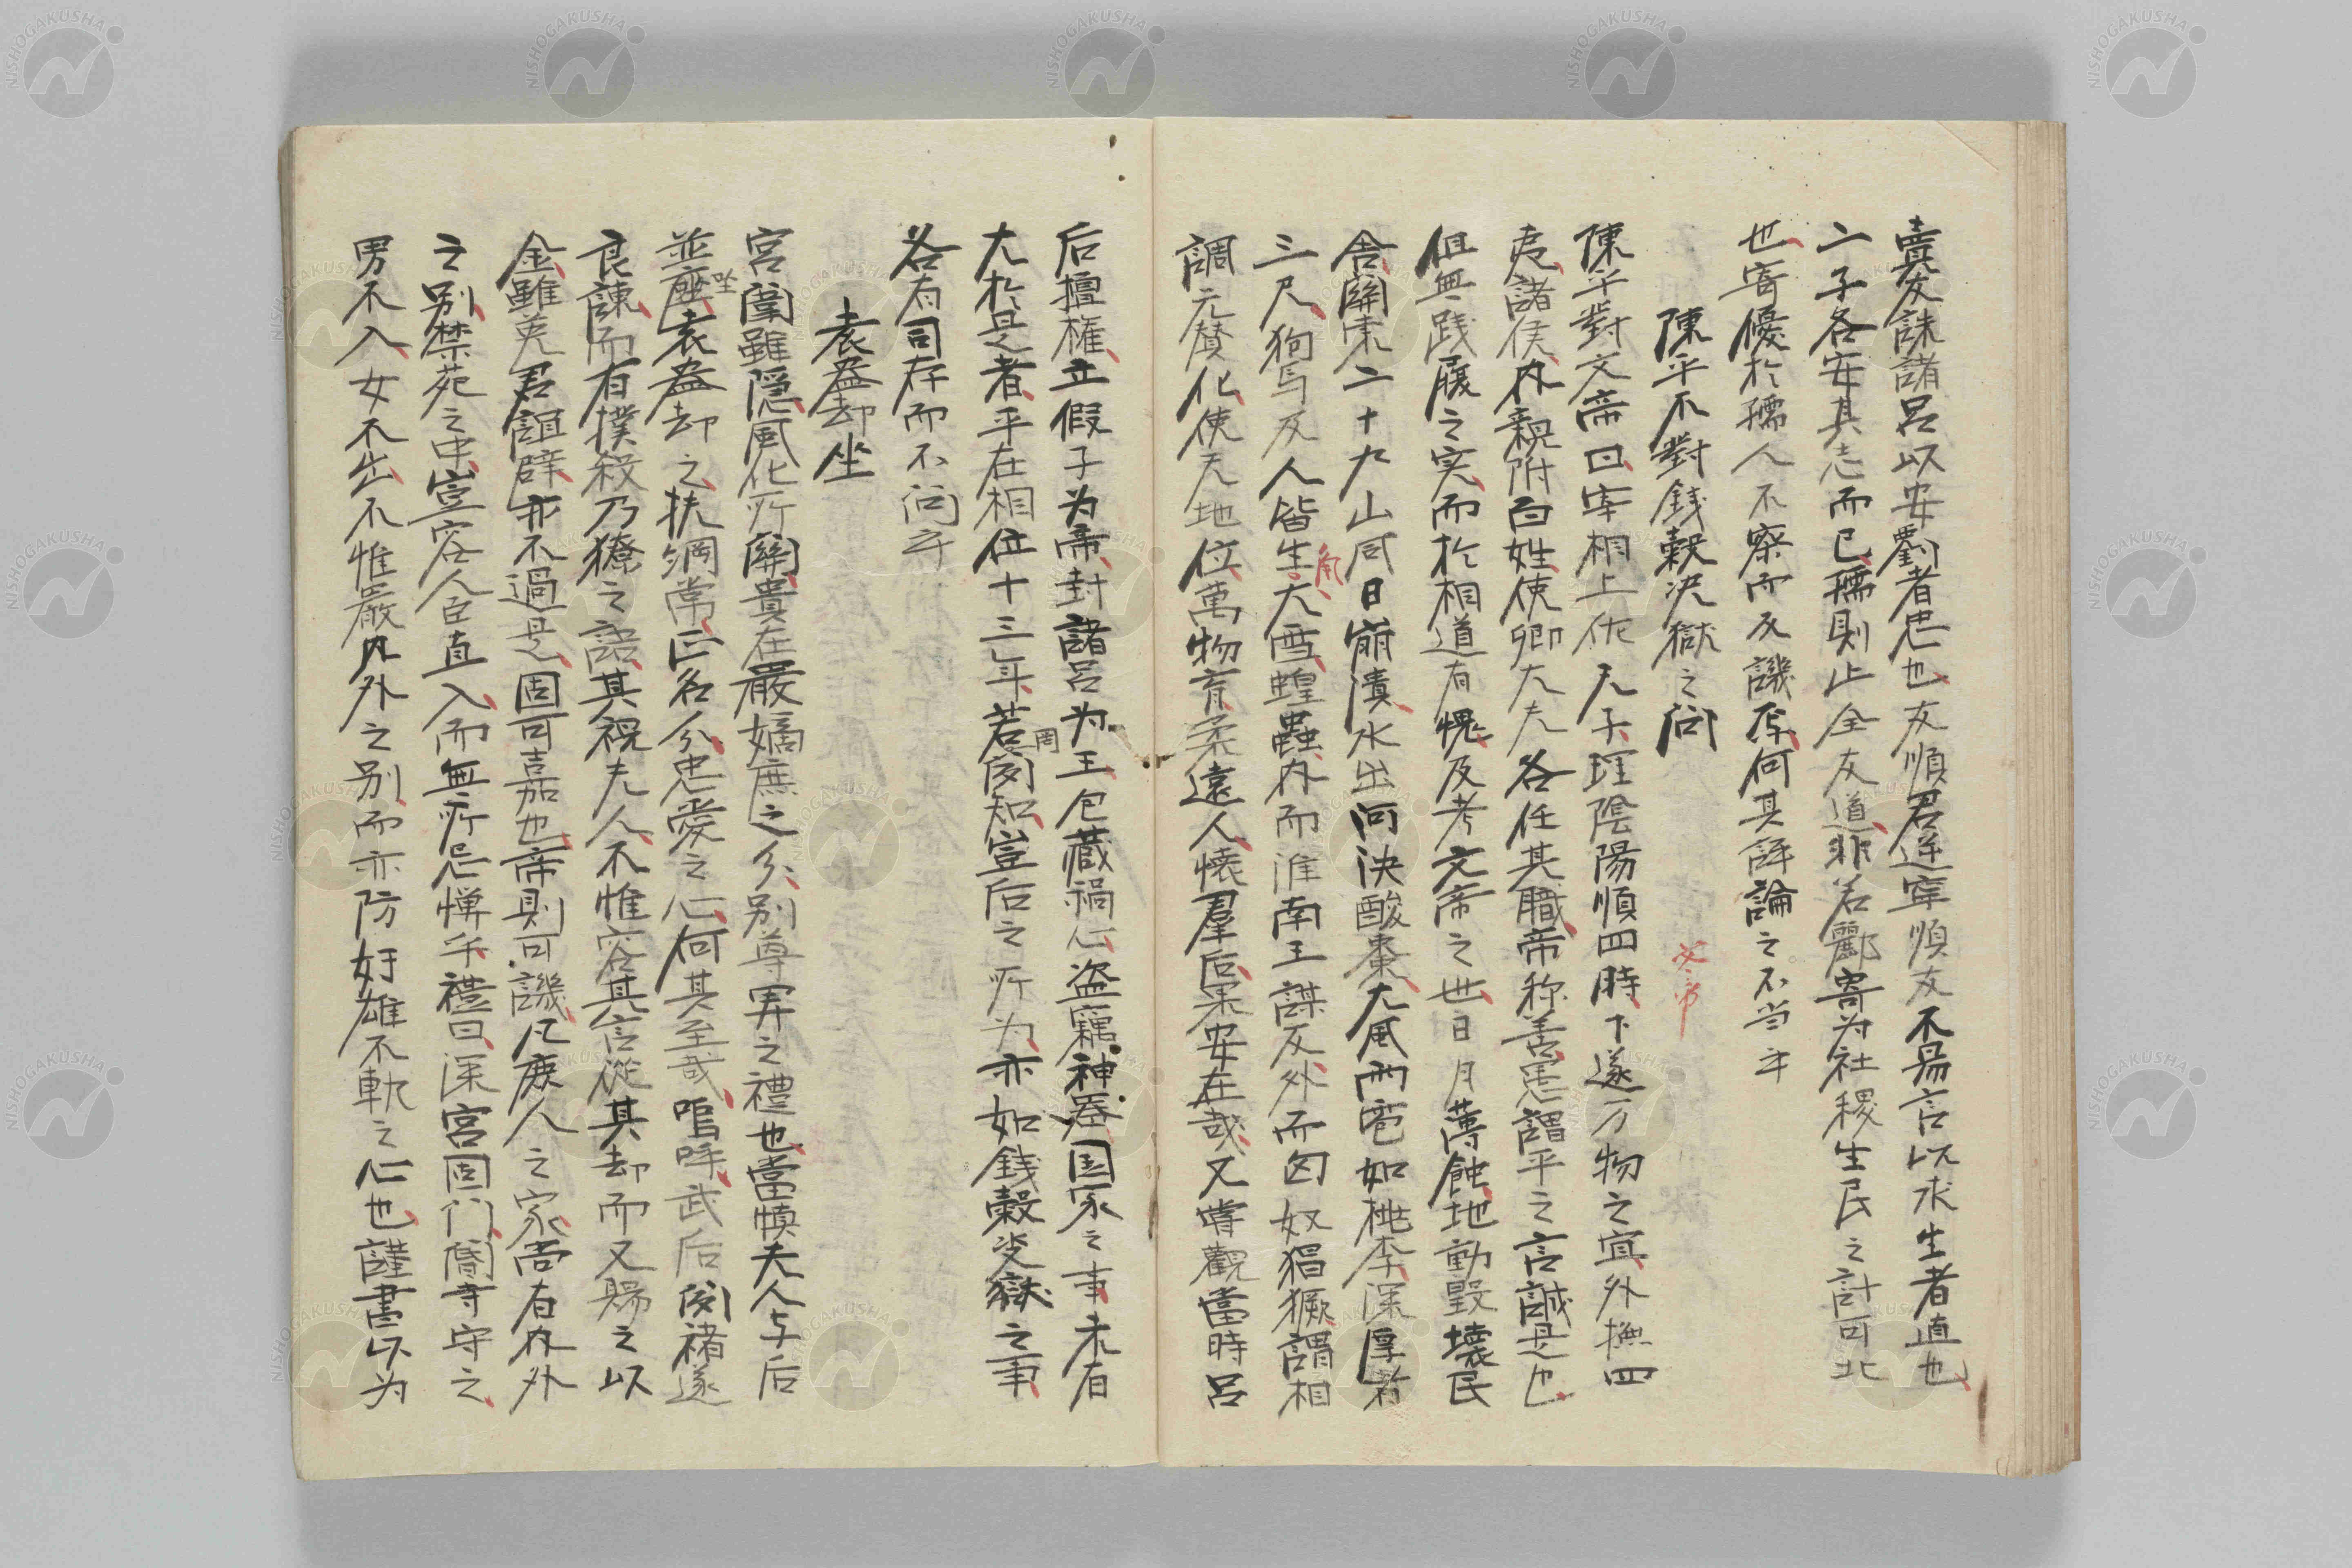 賣友誅諸呂以安劉者忠也友順君逆寧順友不為言以求生者直也
二子各安其志而已孺則止全友道非若酈寄为社稷生民之計可北
也寄優於孺人不察而反譏厚何其評論之不当乎
陳平不對錢穀決獄之问
文帝
陳平對文帝曰宰相上佐天子理陰陽順四時下遂万物之宜外撫四
夷諸侯内親附百姓使卿大夫各任其職帝称善焉謂平之言誠是也
但無践履之实而於相道有愧及考文帝之世日月薄蝕地動毀壞民
舍關東二十九山同日崩潰水出河決酸棗大風雨雹如桃李深厚者
三尺狗馬及人皆生角大雪蝗蟲内而淮南王謀反外而匈奴猖獗謂相
調元贊化使天地位萬物育柔遠人懐羣后果安在哉又嘗觀當時呂
后擅權立假子为帝封諸呂为王包藏禍心盗竊神器国家之事未有
大於是者平在相位十三年若罔知豈后之所为亦如錢穀决獄之事
各有司存而不问乎
袁盎却坐
宮闈雖隱風化所關貴在嚴嫡庶之分別尊卑之禮也當慎夫人与后
並座坐袁盎却之扶綱常正名分忠愛之心何其至哉嗚呼武后因褚遂
良諫而有撲殺乃獠之語其視夫人不惟容其言從其却而又賜之以
金雖英君誼辟亦不過是固可嘉也帝則可譏凡庶人之家尚有内外
之別禁苑之中豈容人臣直入而無所忌憚乎禮曰深宮固门閽寺守之
男不入女不出不惟嚴内外之别而亦防奸雄不軌之心也謹書以为
NISHOGAKUSHA